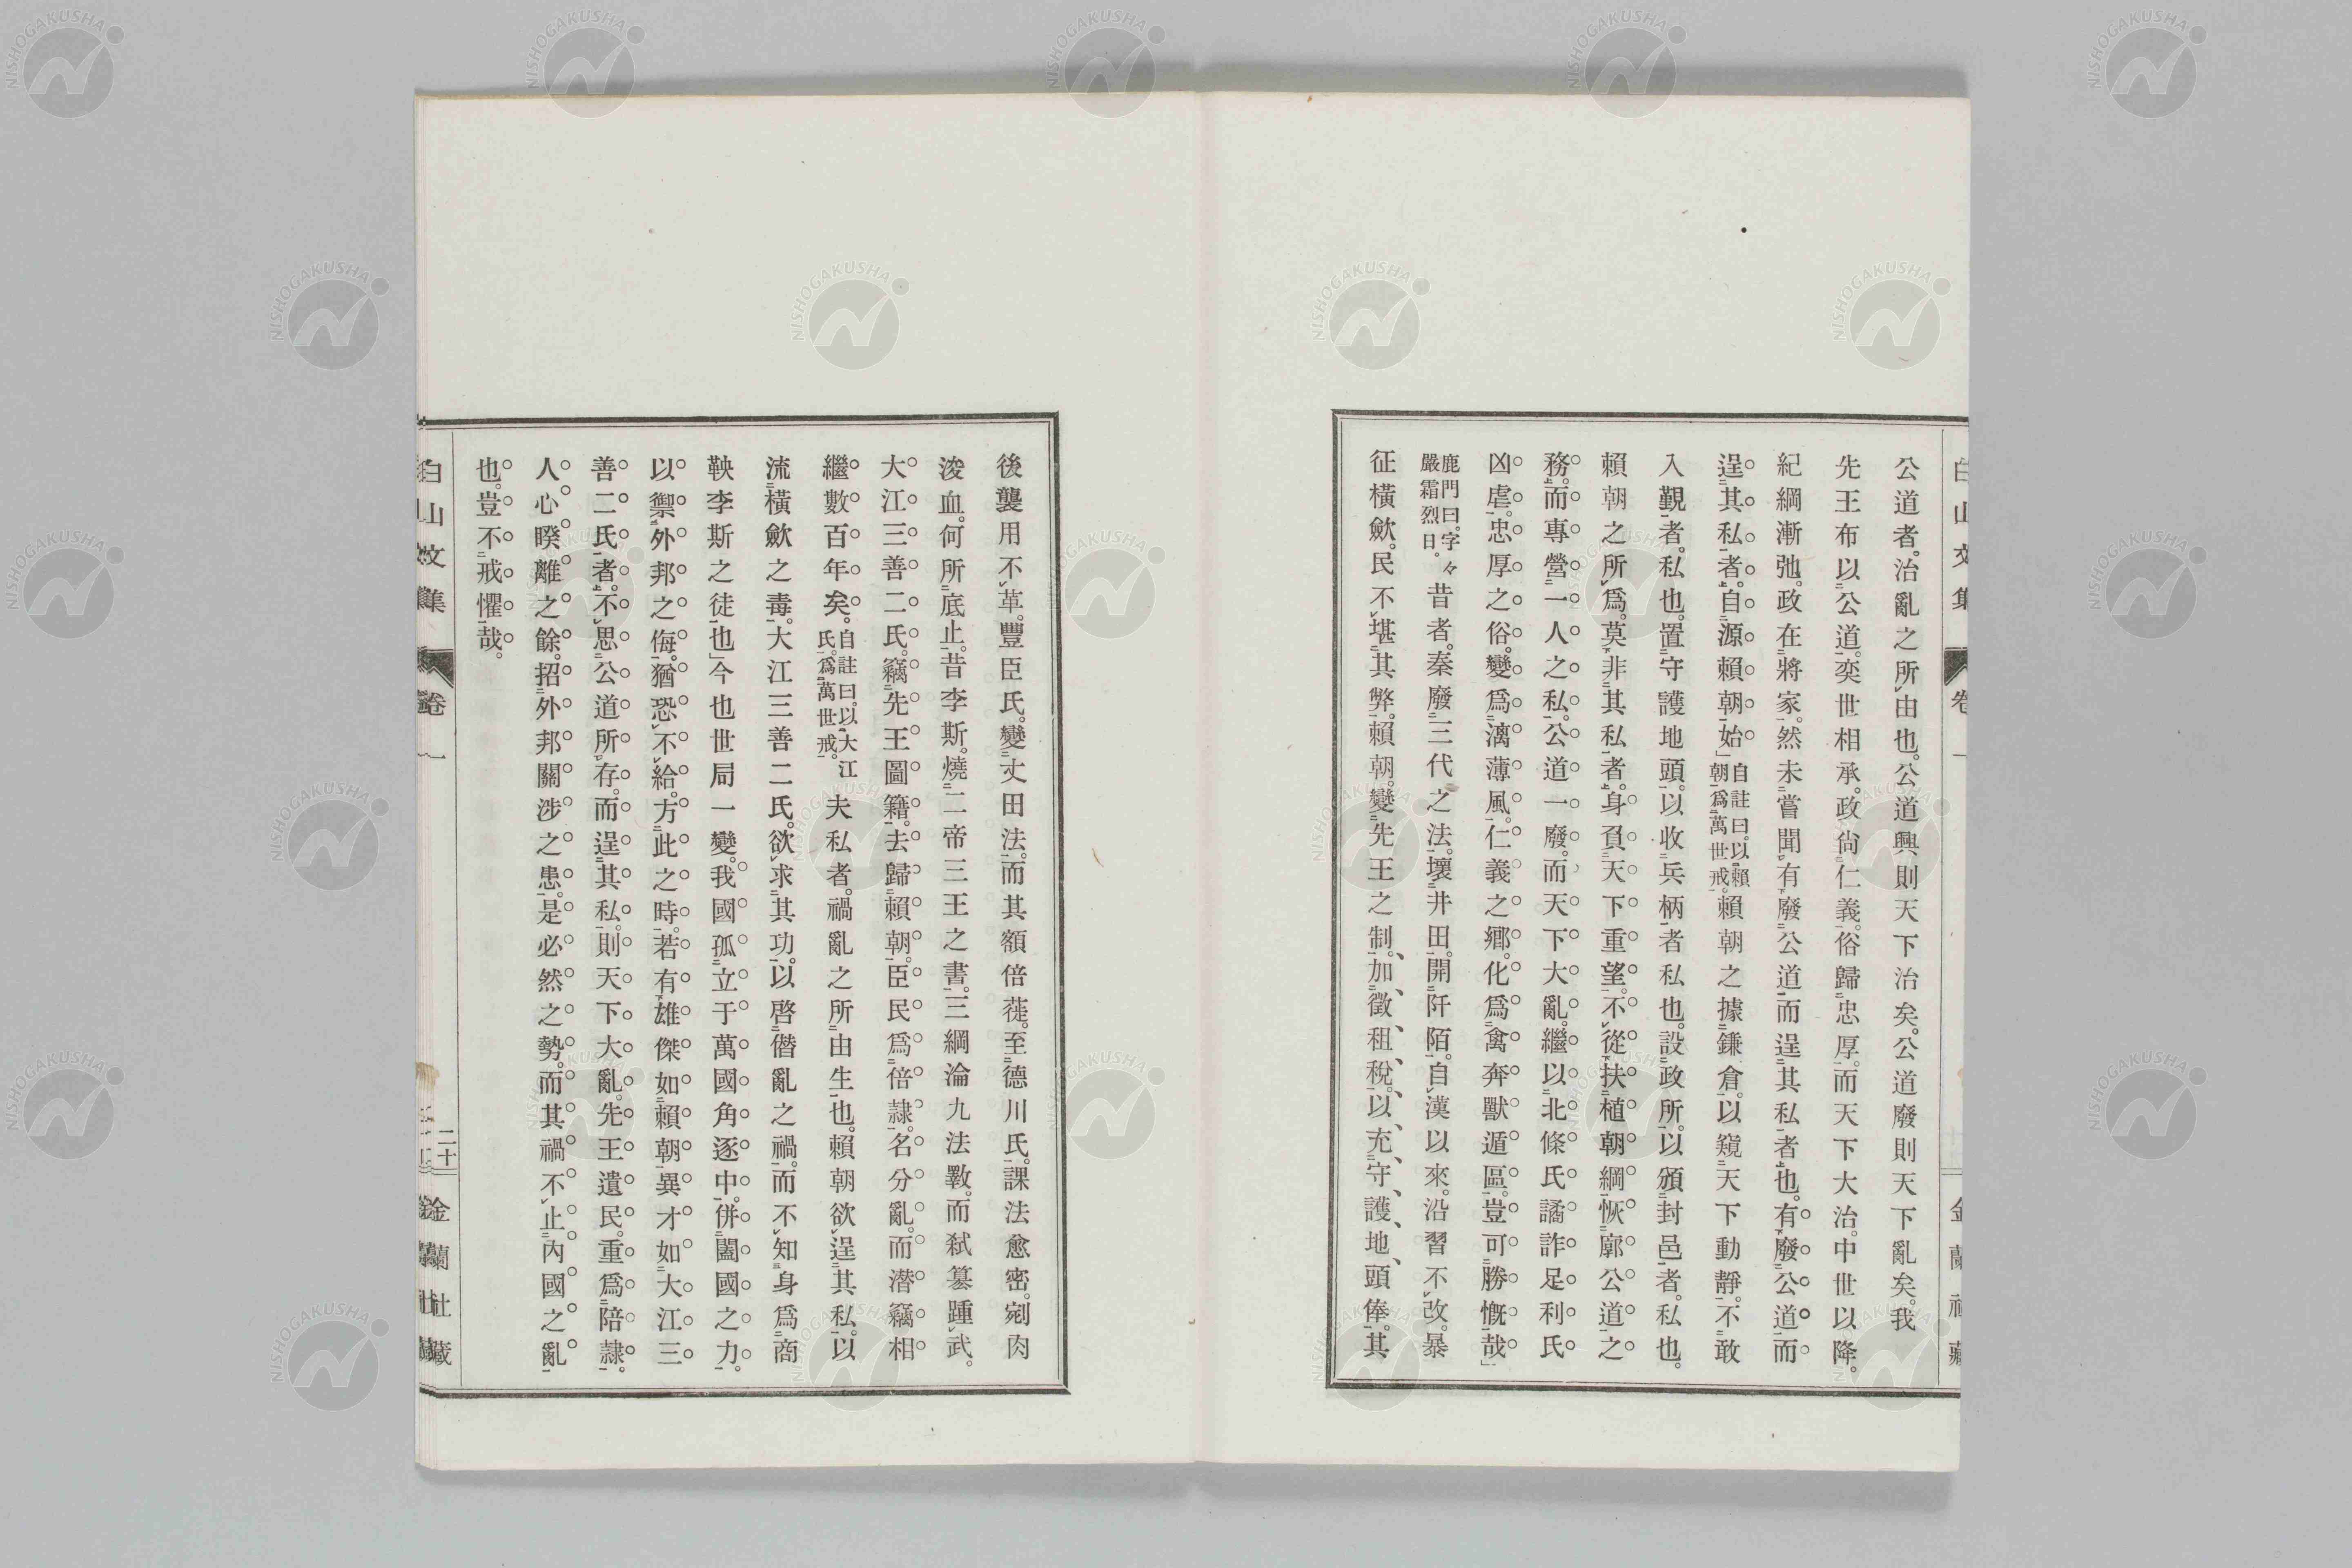 公道者。治亂之所由也。公道興則天下治矣。公道廢則天下亂矣。我
先王布以公道。奕世相承。政尙仁義。俗歸忠厚。而天下大治。中世以降。
紀綱漸弛。政在將家。然未嘗聞有廢公道而逞其私者也。有廢公道而
逞其私者。自源賴朝始」自註曰。以賴朝爲萬世戒。賴朝之據鎌倉。以窺天下動靜。不敢
入覲者。私也。置守護地頭。以收兵柄者私也。設政所。以頒封邑者。私也。
賴朝之所爲。莫非其私者。身負天下重望。不從扶植朝綱恢廓公道之
務。而專營一人之私。公道一廢。而天下大亂。繼以北條氏譎詐足利氏
凶虐。忠厚之俗。變爲漓薄風。仁義之鄕。化爲禽奔獸遁區。豈可勝慨哉」
鹿門曰。字々嚴霜烈日。昔者。秦廢三代之法。壞井田。開阡陌。自漢以來。沿習不改。暴
征橫歛。民不堪其弊。賴朝。變先王之制。加徵租稅。以充守護地頭俸。其
後襲用不革。豐臣氏。變丈田法。而其額倍蓰。至德川氏。課法愈密。剜肉
浚血。何所底止。昔李斯。燒二帝三王之書。三綱淪九法斁。而弑簒踵武。
大江三善二氏。竊先王圖籍。去歸賴朝。臣民爲倍隷。名分亂。而潜竊相
繼數百年矣。自註曰。以大江氏。爲萬世戒。夫私者。禍亂之所由生也。賴朝欲逞其私。以
流橫歛之毒。大江三善二氏。欲求其功。以啓僭亂之禍。而不知身爲商
鞅李斯之徒也」今也世局一變。我國孤立于萬國角逐中。併闔國之力。
以禦外邦之侮。猶恐不給。方此之時。若有雄傑如賴朝異才如大江三
善二氏者。不思公道所存。而逞其私。則天下大亂。先王遺民。重爲陪隷。
人心暌離之餘。招外邦關涉之患。是必然之勢。而其禍不止內國之亂
也。豈不戒懼哉。
白山文集 卷一 二十 金蘭社藏
NISHOGAKUSHA